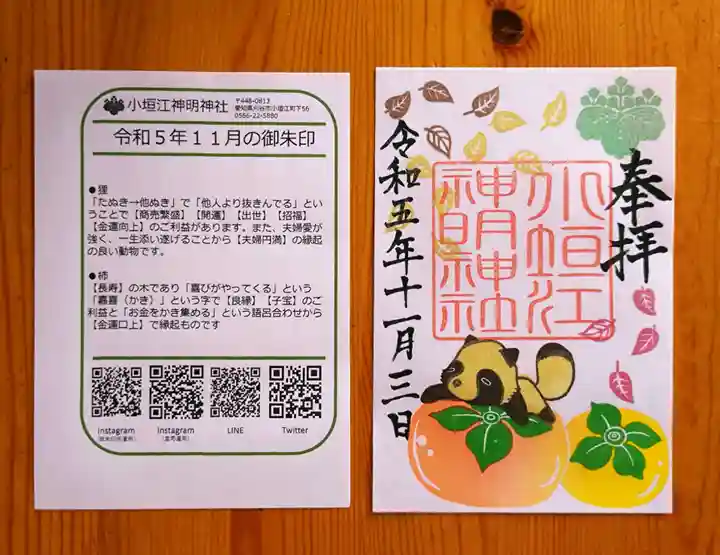 小垣江神明神社
〒448-0813
愛知県刈谷市小垣江町下56
0566-22-5880
令和5年11月の御朱印
●狸
「たぬき→他ぬき」で「他人より抜きんでる」とい
うことで【商売繁盛】【開運】【出世】【招福】
【金運向上】のご利益があります。また、夫婦愛が
強く、一生添い遂げることから【夫婦円満】の縁起
の良い動物です。
●柿
【長寿】の木であり「喜びがやってくる」という
「嘉喜（かき）」という字で【良縁】【子宝】のご
利益と「お金をかき集める」という語呂合わせから
【金運口上】で縁起ものです
Instagram
Instagram
LINE
Twitter
奉拝
小垣江
神明神社
令和五年十一月三日